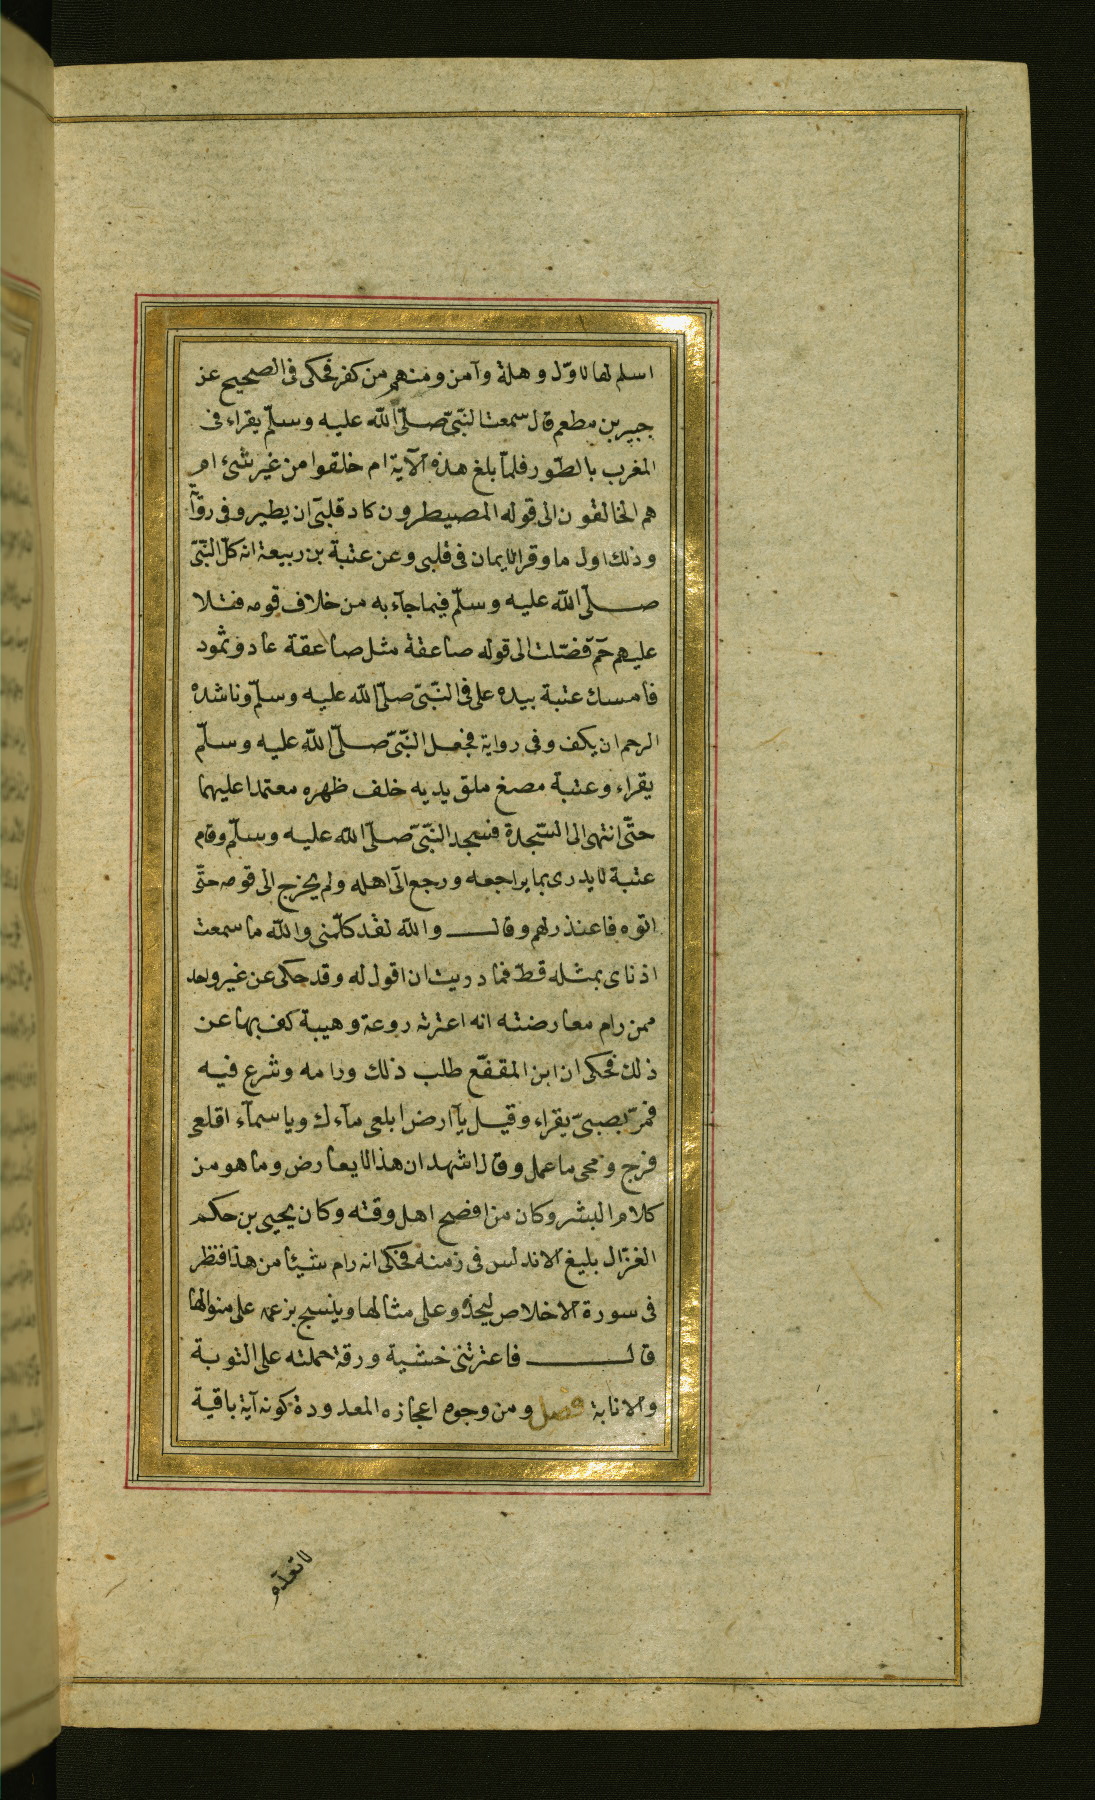 اسلم لها لاوّل وهلة وآمن ومنهم من كفر فحكى فى الصحيح عن
جبير بن مطعم قال سمعت النّبىّ صلّى الله عليه وسلّم يقراء فى
المغرب بالطّور فلمّا بلغ هذه الآية ام خلقوا من غير شىء ام
هم الخالقون الى قوله المصيطرون كاد قلبى ان يطير وفى روآية
وذلك اول ما وقر الايمان فى قلبى وعن عتبة بن ربيعة انه كلّم النّبىّ
صلّى الله عليه وسلّم فيما جآء به من خلاف قومه فتلا
عليهم حمٓ فصّلت الى قوله صاعقة مثل صاعقة عاد وثمود
فامسك عتبة بيده على فى النّبىّ صلّى الله عليه وسلّم وناشده
الرحم ان يكف وفى رواية فجعل النّبىّ صلّى الله عليه وسلّم
يقراء وعتبة مصغ ملق يديه خلف ظهره معتمدا عليهما
حتّى انتهى الى السّجدة فسجد النّبىّ صلّى الله عليه وسلّم وقام
عتبة لا يدرى بما يراجعه ورجع الى اهله ولم يخرج الى قومه حتّى
اتوه فاعتذر لهم وقال والله لقد كلّمنى والله ما سمعت
اذناى بمثله قطّ فما دريت ان اقول له وقد حكى عن غير واحد
ممن رام معارضته انه اعترته روعة وهيبة كف بها عن
ذلك فحكى ان ابن المقفّع طلب ذلك ورامه وشرع فيه
فمرّ بصبىّ يقراء وقيل يآ ارض ابلعى مآءك ويا سمآء اقلعى
فرجع ومحى ما عمل وقال اشهد ان هذا لا يعارض وما هو من
كلام البشر وكان من افصح اهل وقته وكان يحيى بن حكم
الغزال بليغ الاندلس فى زمنه فحكى انه رام شيئا من هذا فنظر
فى سورة الاخلاص ليحذو على مثالها وينسج بزعمه على منوالها
قال فاعترتنى خشية ورقة حملته على التوبة
والانابة فصل ومن وجوه اعجازه المعدودة كونه آية باقية
لا تعدم